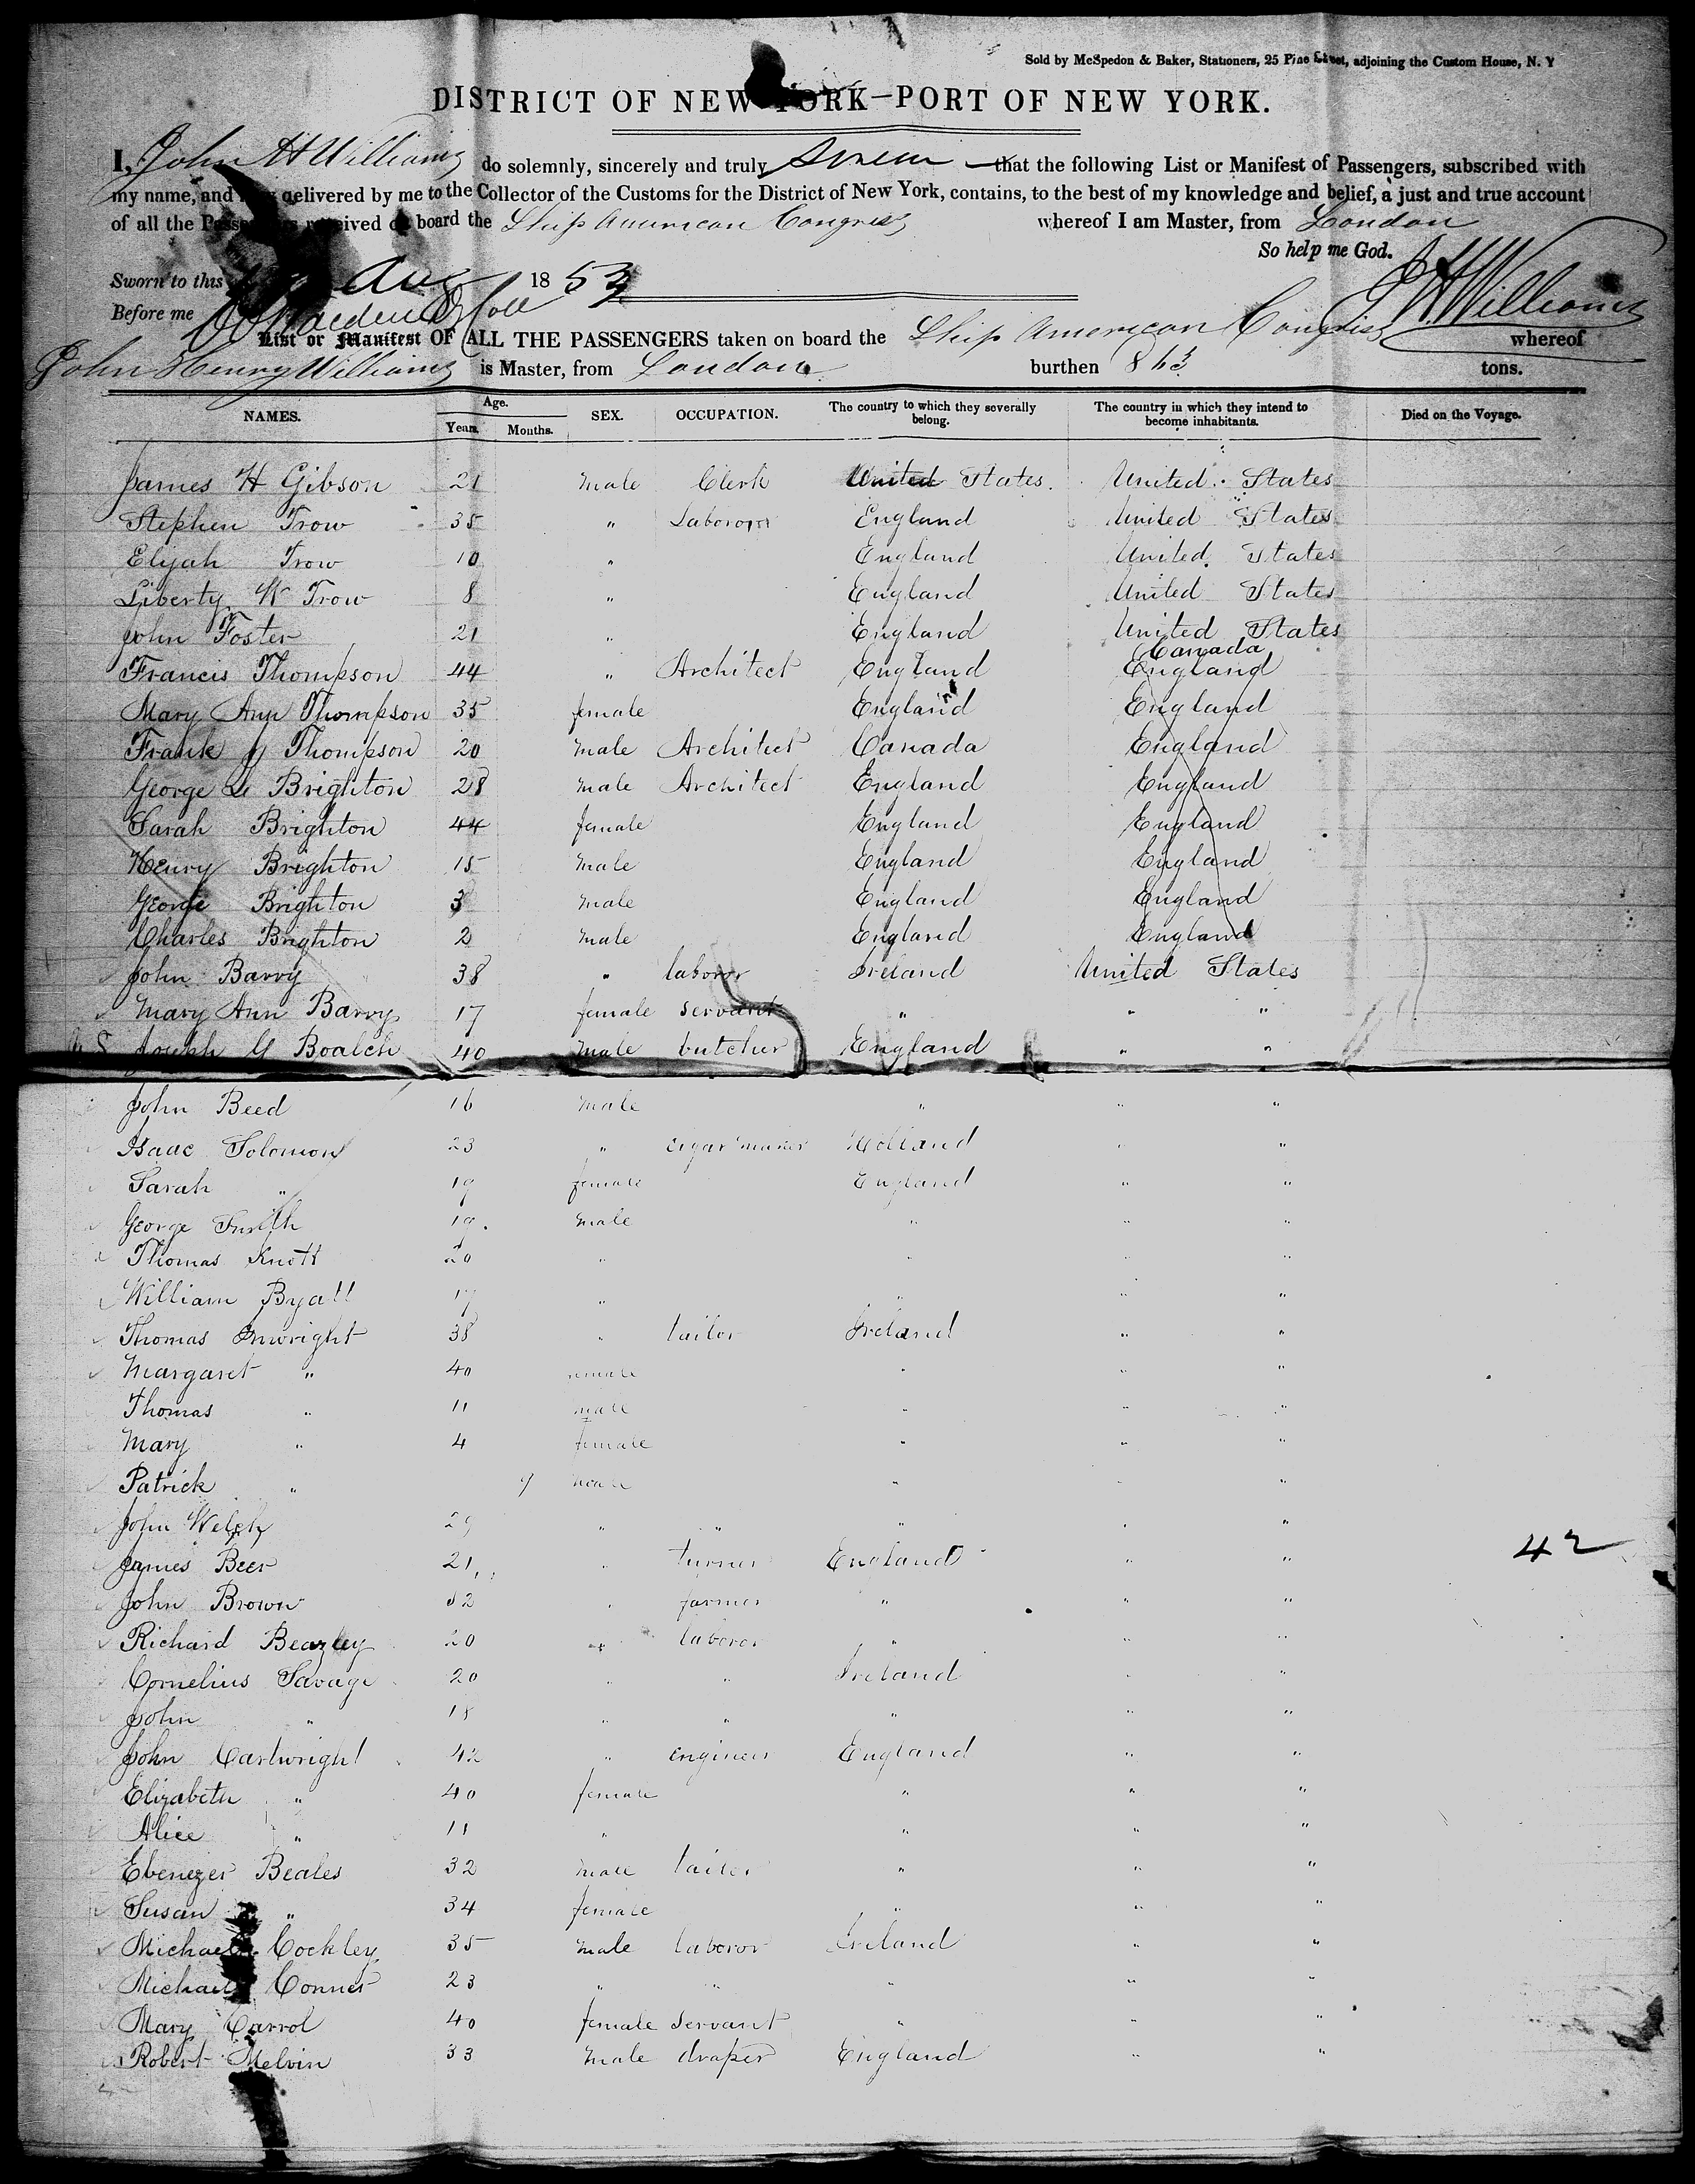 Sold by McSpedon & Baker, Stationers, 25 Pine Street, adjoining the Custom House, N. Y
DISTRICT OF NEW YORK—PORT OF NEW YORK.
I, John H Williams do solemnly, sincerely and truly swear that the following List or Manifest of Passengers, subscribed with
my name, and now delivered by me to the Collector of the Customs for the District of New York, contains, to the best of my knowledge and belief, a just and true account
of all the Passengers received on board the Ship American Congress whereof I am Master, from London
So help me God.
Sworn to this Aug 1853 J H Williams
Before me
List or Manifest OF ALL THE PASSENGERS taken on board the Ship American Congress whereof
John Henry Williams is Master, from London burthen 863 tons.
NAMES. Age. Years. Months. SEX. OCCUPATION. The country to which they severally belong. The country in which they intend to become inhabitants. Died on the Voyage.
James H Gibson 21 Male Clerk United States United States
Stephen Trow 35 " Laboror England United States
Elijah Trow 10 " England United States
Liberty W Trow 8 " England United States
John Foster 21 " England United States
Canada
Francis Thompson 44 " Architect England England
Mary Ann Thompson 35 female England England
Frank J Thompson 20 Male Architect Canada England
George Le Brighton 28 Male Architect England England
Sarah Brighton 44 female England England
Henry Brighton 15 Male England England
George Brighton 3 Male England England
Charles Brighton 2 Male England England
John Barry 38 " laboror Ireland United States
Mary Ann Barry 17 female servant " " "
Joseph G Boalch 40 Male butcher England " "
John Beed 16 Male " " "
Isaac Solomon 23 " cigar maker Holland " "
Sarah " 19 female England " "
George Smith 19 Male " " "
Thomas Knott 20 " " " "
William Byall 17 " " " "
Thomas Inwright 38 " tailor Ireland " "
Margaret " 40 female " " "
Thomas " 11 male " " "
Mary " 4 female " " "
Patrick " 9 male " " "
John Welch 29 " " " " "
James Beer 21 " turner England " " 42
John Brown 32 " farmer " " "
Richard Beazley 20 " laboror " " "
Cornelius Savage 20 " " Ireland " "
John " 18 " " " " "
John Cartwright 42 " engineer England " "
Elizabeth " 40 female " " "
Alice " 11 " " " "
Ebenezer Beales 32 male tailor " " "
Susan " 34 female " " "
Michael Cockley 35 male laboror Ireland " "
Michael Conner 23 " " " " "
Mary Carrol 40 female servant " " "
Robert Melvin 33 Male draper England " "